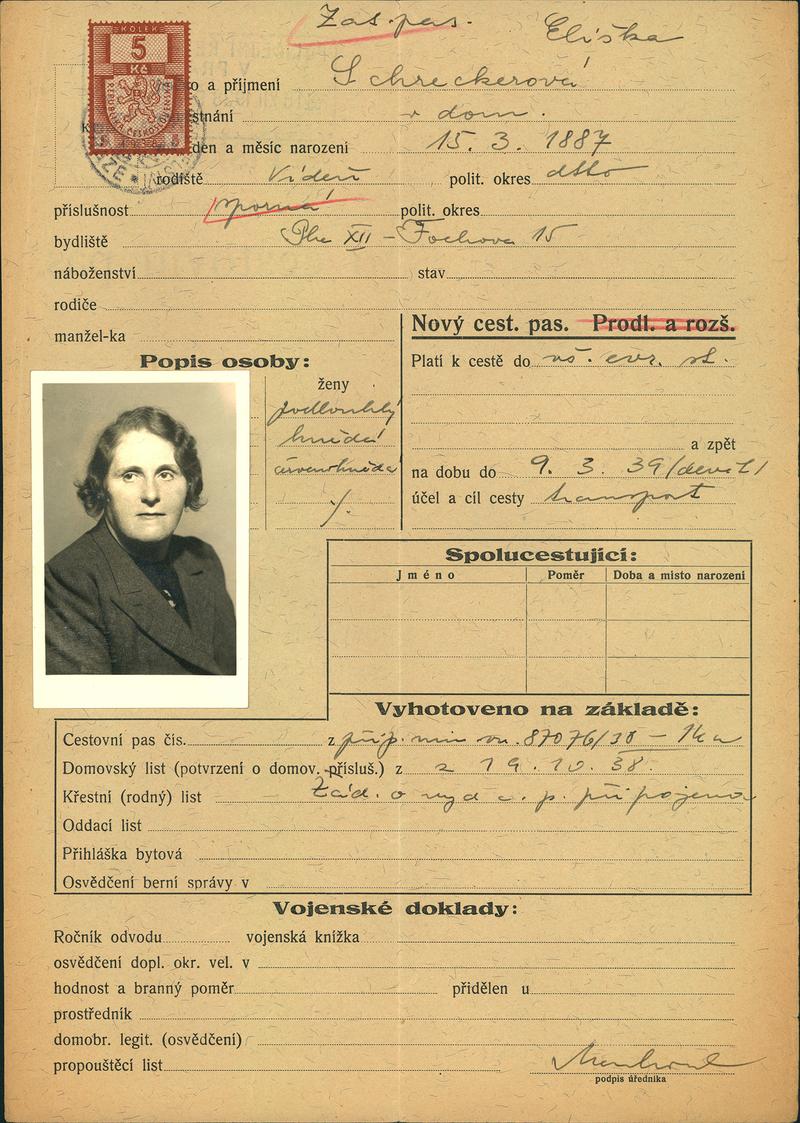 Zat. pas.
Eliška
KOLEK
5
Kč
REPUBLIKA ČESKOSLOVENSKÁ
o a příjmení Schreckerová
stnání v dom.
den a měsíc narození 15. 3. 1887
rodiště Vídeň polit. okres dtto
příslušnost sporná polit. okres
bydliště Pha XII – Fochova 15
náboženství stav
rodiče
manžel-ka
Nový cest. pas. Prodl. a rozš.
Popis osoby:
Platí k cestě do vš. evr. st.
ženy
podlouhlý
hnědá
červenohnědá
a zpět
na dobu do 9. 3. 39
účel a cíl cesty transport
Spolucestující:
Jméno Poměr Doba a místo narození
Vyhotoveno na základě:
Cestovní pas čís. z příp. min vn. 87076/38
Domovský list (potvrzení o domov. přísluš.) z z 19. 10. 38.
Křestní (rodný) list Žád. o vyd c. p. připojena
Oddací list
Přihláška bytová
Osvědčení berní správy v
Vojenské doklady:
Ročník odvodu vojenská knížka
osvědčení dopl. okr. vel. v
hodnost a branný poměr přidělen u
prostředník
domobr. legit. (osvědčení)
propouštěcí list
podpis úředníka